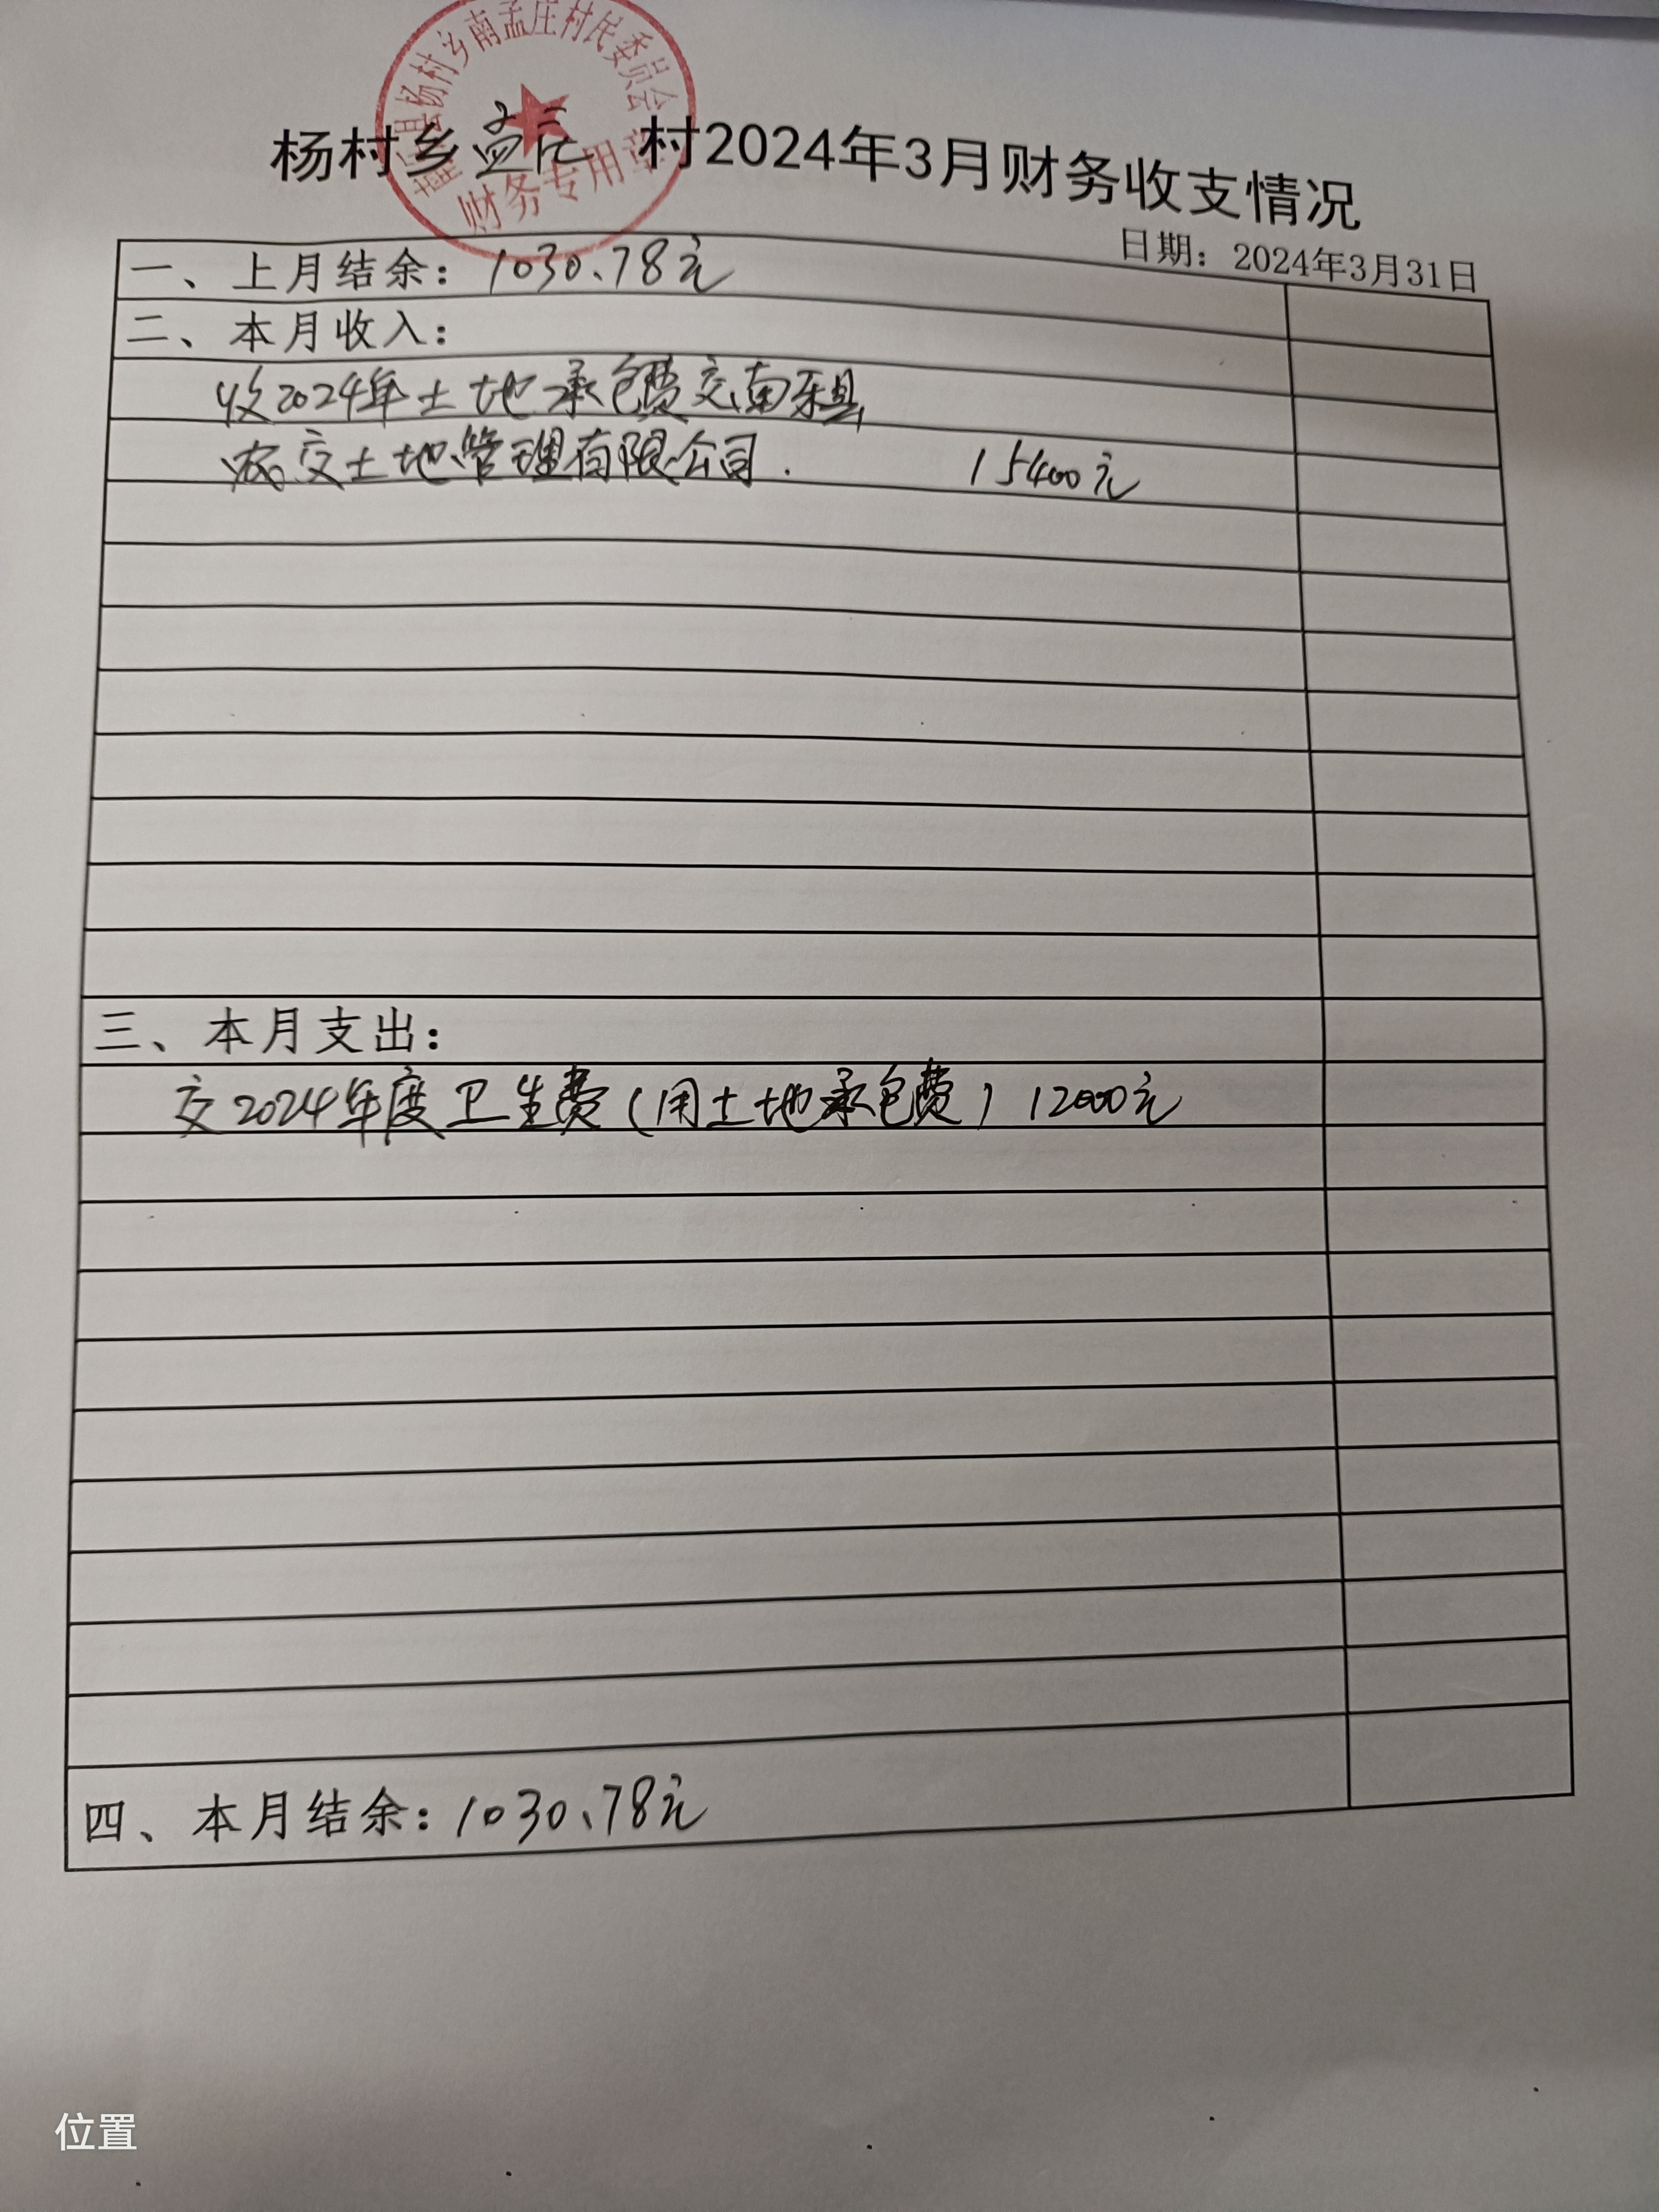 县杨村乡南孟庄村民委员会
财务专用章
杨村乡孟庄村2024年3月财务收支情况
日期：2024年3月31日
一、上月结余：1030.78元
二、本月收入：
收2024年土地承包费交南乐县
农交土地管理有限公司. 15400元
三、本月支出：
交2024年度卫生费（用土地承包费）12000元
四、本月结余：1030.78元
位置